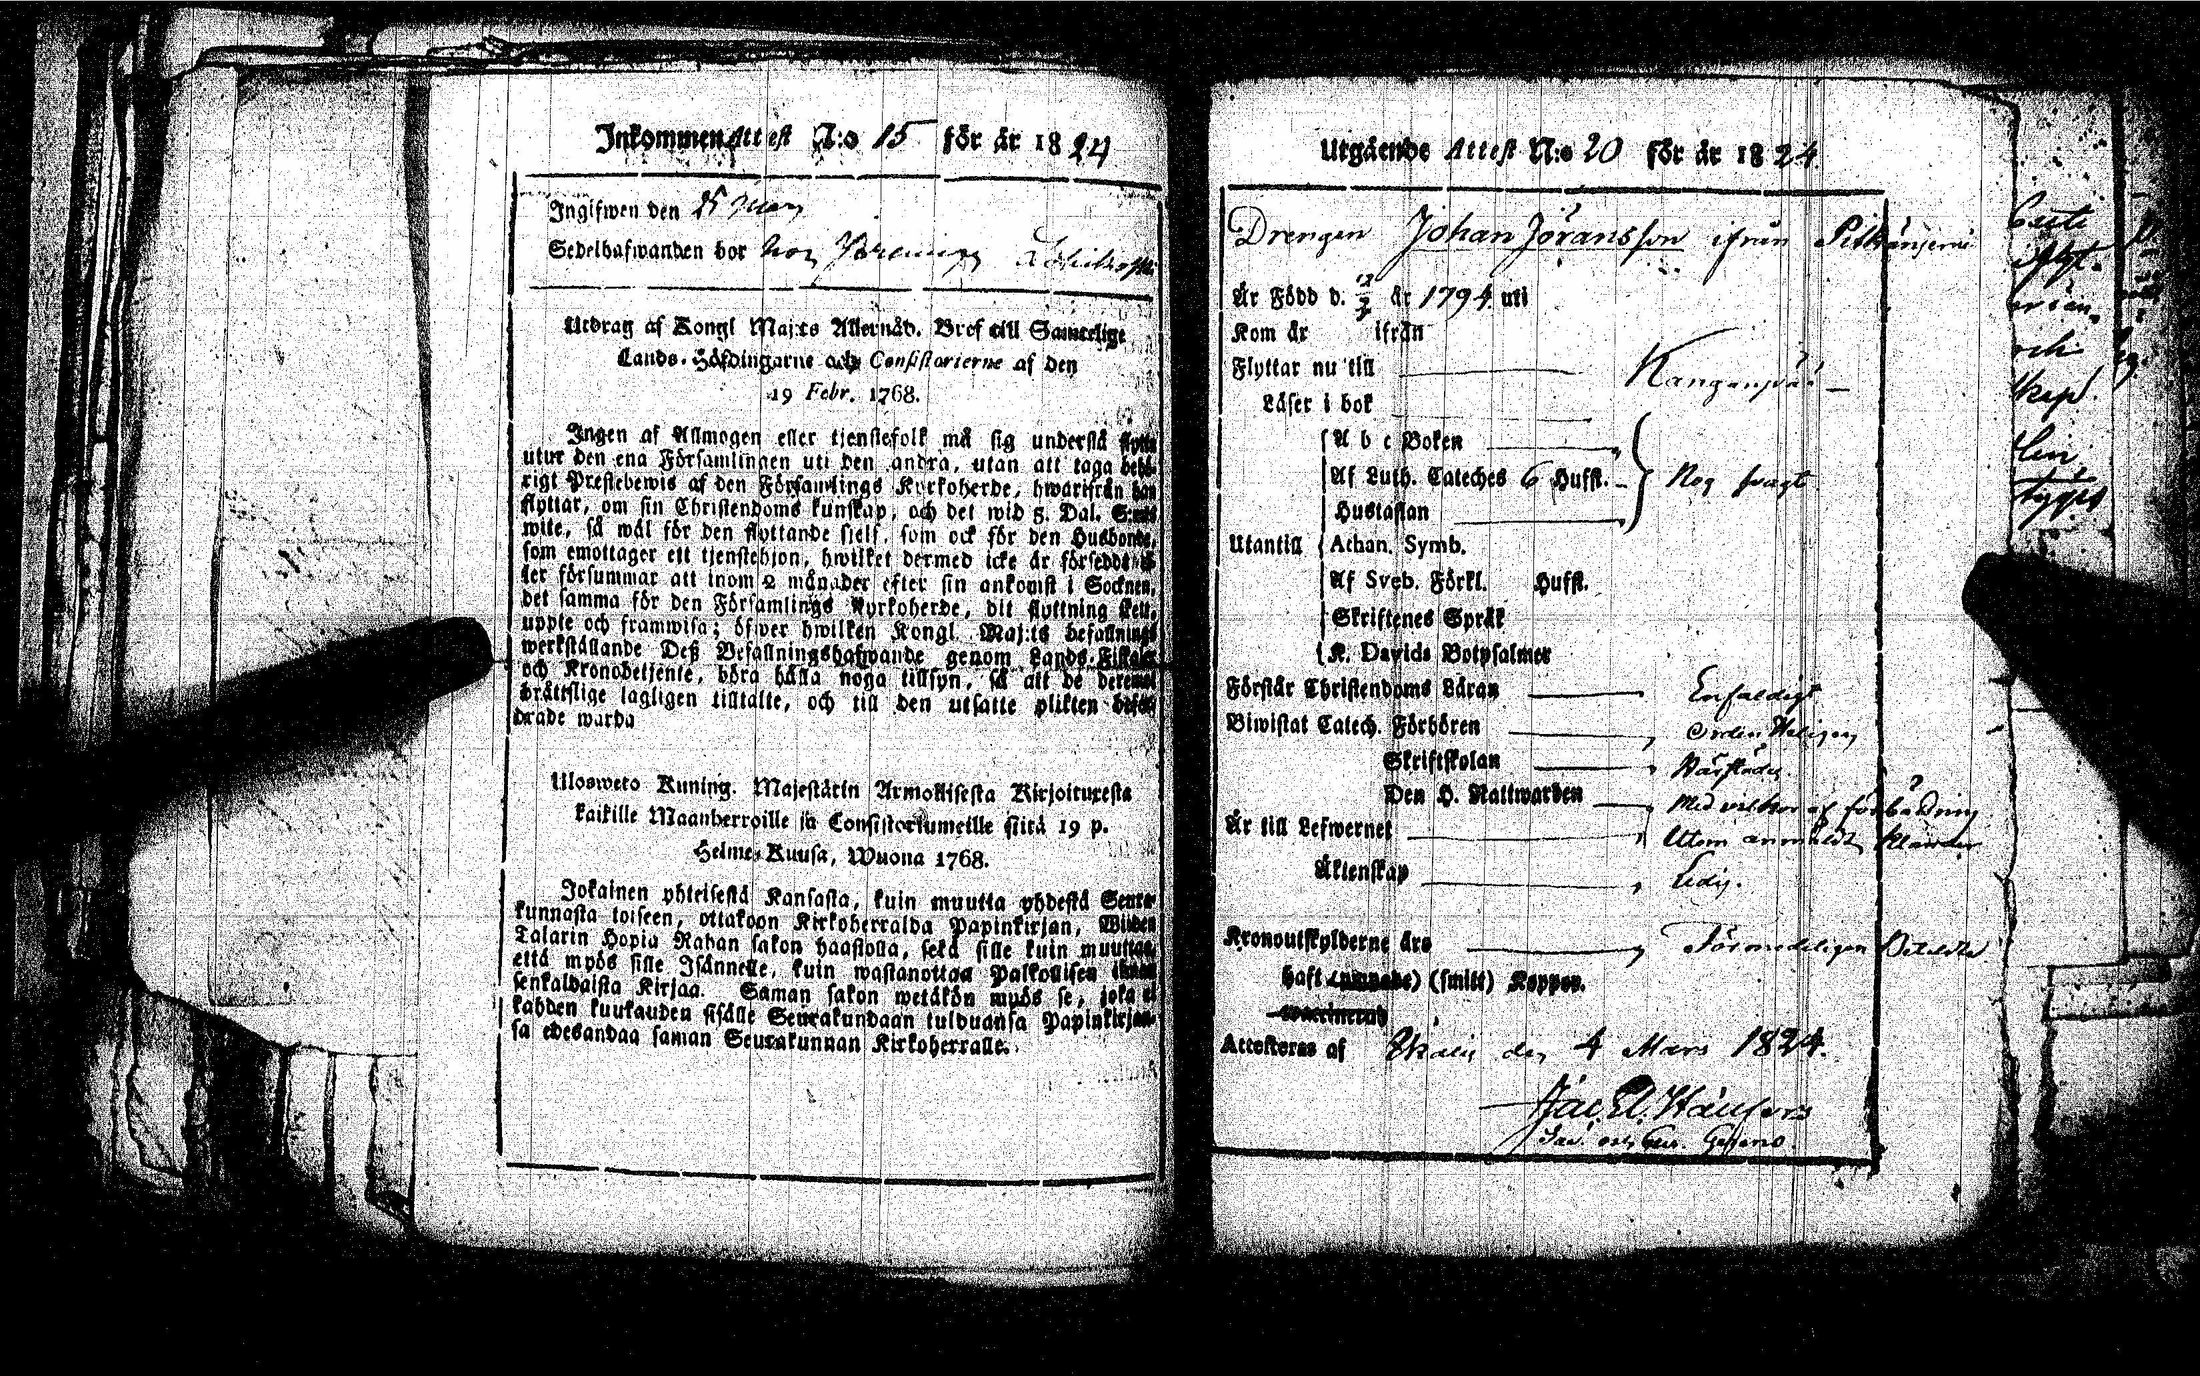 Inkommen Attest N:o 15 för år 1824
Ingifwen den 25
Sedelhafwanden bor hos
Utdrag af Kongl Maj:ts Allernåd. Bref till Samtelige
Lands-Höfdingarne och Consistorierne af den
19 Febr. 1768.
Ingen af Allmogen eller tjenstefolk må sig understå flytta
utur den ena Församlingen uti den andra, utan att taga behö-
rigt Prestebewis af den Församlings Kyrkoherde, hwarifrån han
flyttar, om sin Christendoms kunskap, och det wid 8. Dal. S:mts
wite, så wäl för den flyttande sielf, som ock för den Husbonde,
som emottager ett tjenstehjon, hwilket dermed icke är försedt, el-
ler försummar att inom 2 månader efter sin ankomst i Socknen,
det samma för den Församlings Kyrkoherde, dit flyttning skett,
uppte och framwisa; öfwer hwilken Kongl. Maj:ts befallnings
werkställande Deß Befallningshafwande genom Lands-Fiskaler
och Kronobetjente, böra hålla noga tillsyn, så att de deremot
bråttslige lagligen tilltalte, och till den utsatte plikten befor-
drade warda
Ulosweto Kuning. Majestätin Armollisesta Kirjoituxesta
kaikille Maanherroille ja Consistoriumeille siitä 19 p.
Helme-Kuusa, Wuona 1768.
Jokainen yhteisestä Kansasta, kuin muutta yhdestä Seura-
kunnasta toiseen, ottakoon Kirkoherralda Papinkirjan, Wiiden
Talarin Hopia Rahan sakon haastolla, sekä sille kuin muuttaa,
että myös sille Isännelle, kuin wastanottaa Palkollisen ilman
senkaldaista Kirjaa. Saman sakon wetäkön myös se, joka ei
kahden kuukauden sisälle Seurakundaan tulduansa Papinkirjan-
sa edesandaa saman Seurakunnan Kirkoherralle.
Utgående Attest N:o 20 för år 1824.
Drengen Johan Jöransson ifrån
Är Född d. 12/2 år 1794 uti
Kom år ifrån
Flyttar nu till Kanganpää
Läser i bok
A b c Boken
Af Luth. Cateches 6 Hufst. Nog svagt
Hustaflan
Utantill Athan. Symb.
Af Sveb. Förkl. Hufst.
Skriftenes Språk
K. Davids Botpsalmer
Förstår Christendoms Läran Enfaldigt
Biwistat Catech. Förhören
Skriftskolan
Den H. Nattwarden Med vilkor af förbättring
Är till Lefwernet Utom anmäldt klander
Äktenskap Ledig.
Kronoutskylderne äro Förmodeligen Betalda
Haft (smitt) Koppor.
Attesteras af Ikalis den 4 Mars 1824.